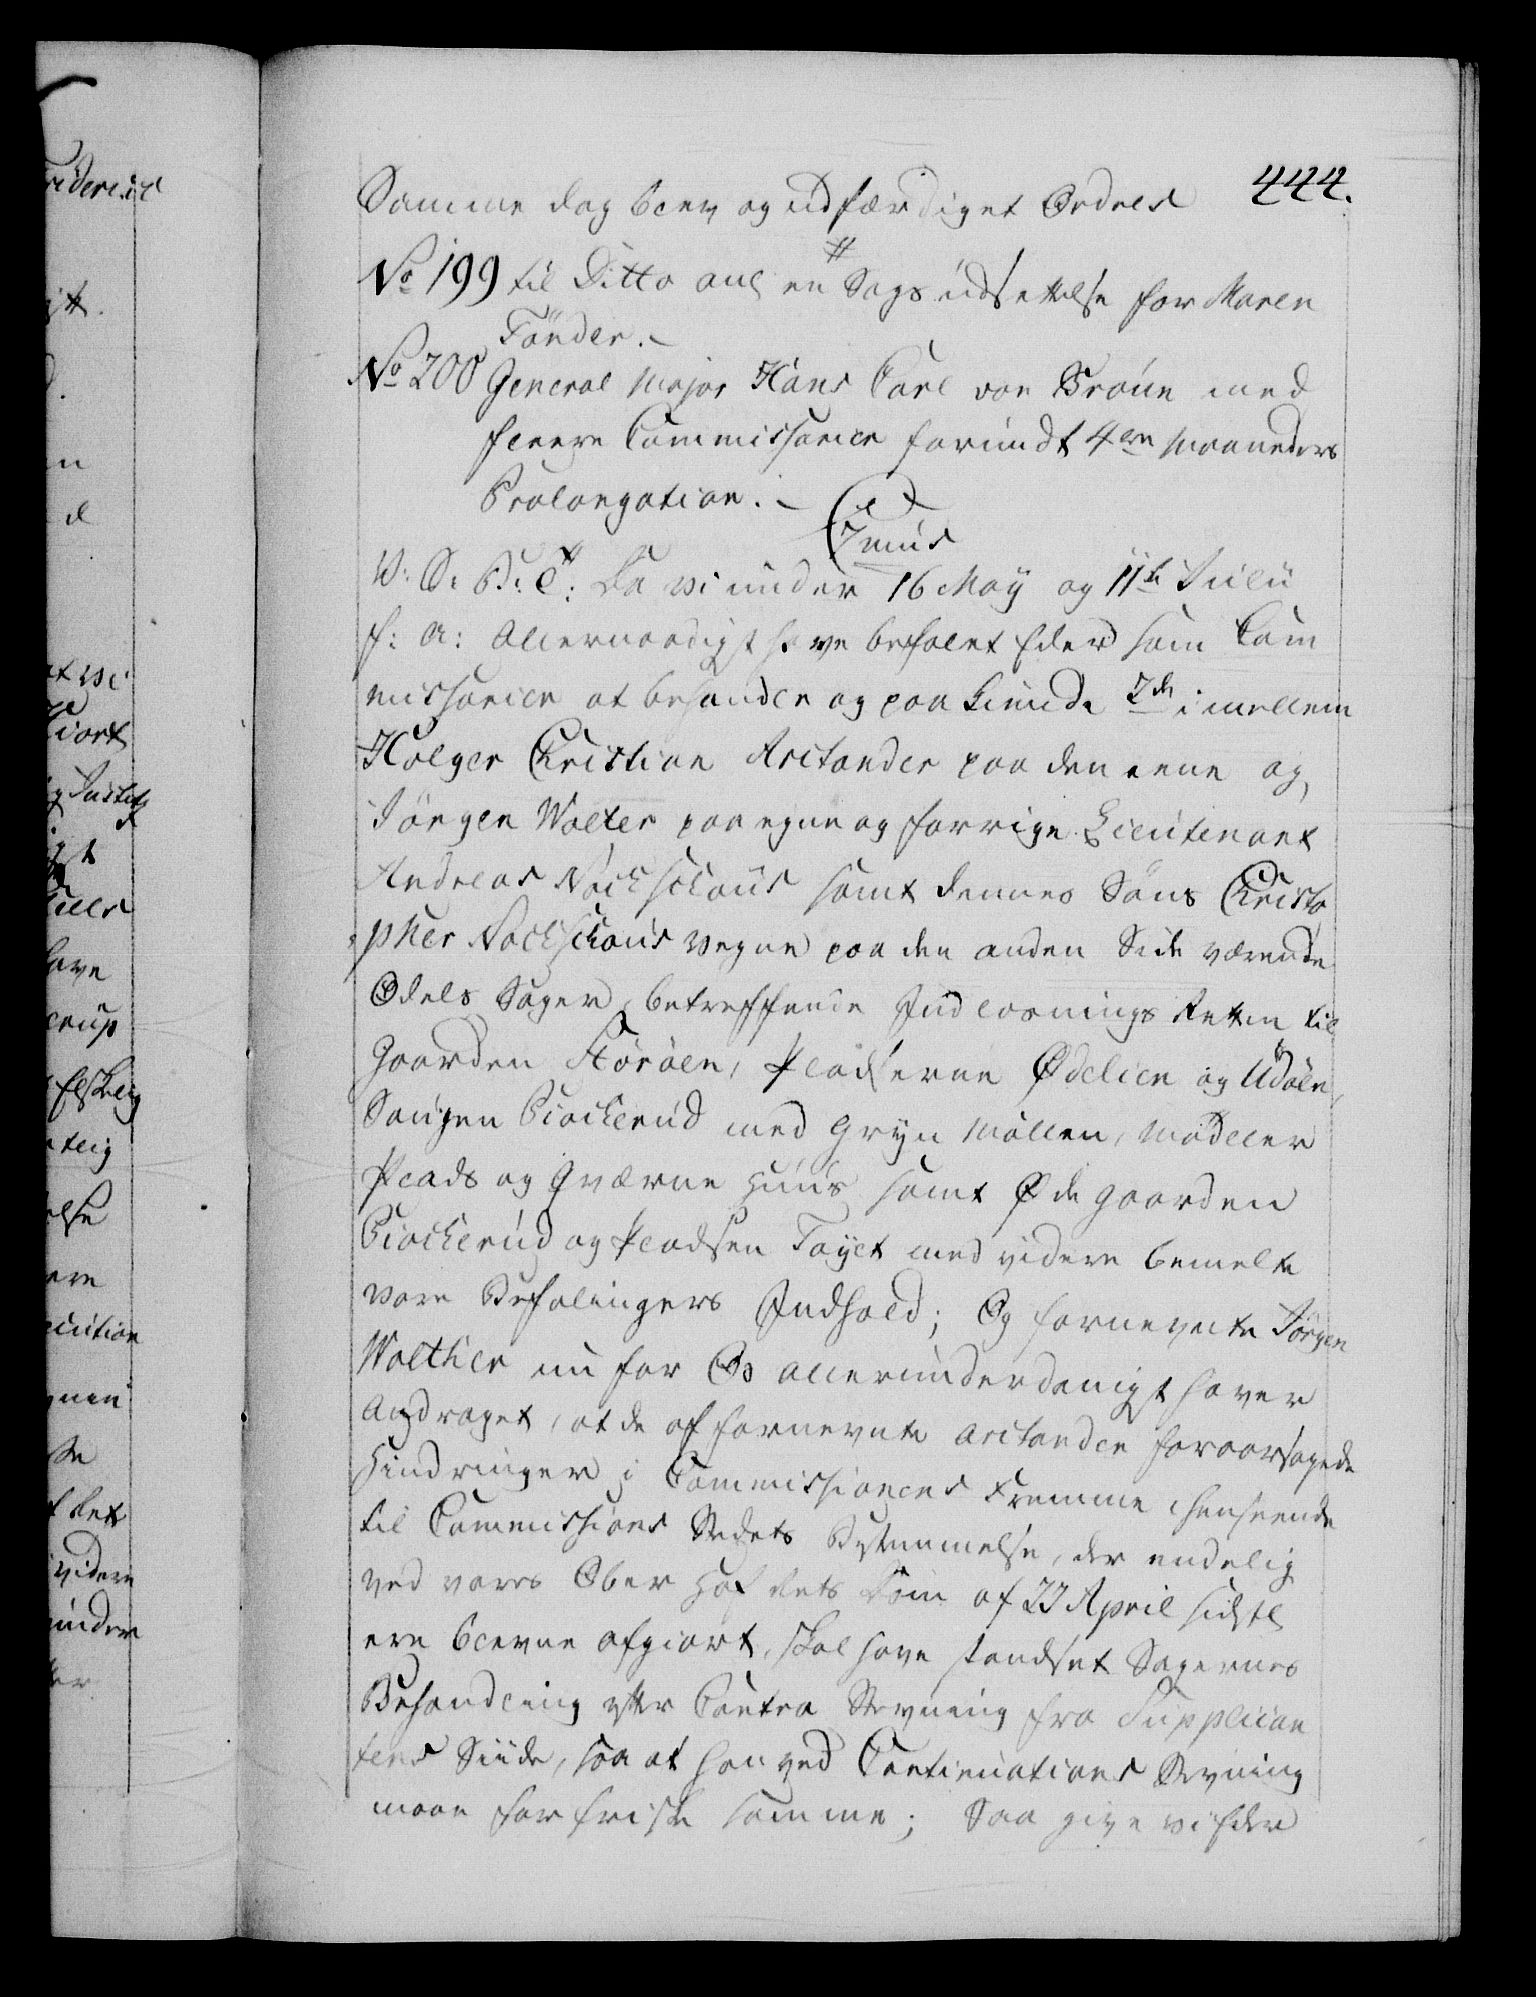 444.
Samme dag blev og udfærdiget Ordres
No 199 til Ditto anl en Sags udsettelse for Maren
Tönder.
No 200 General Major Hans Carl von Broun med
fleere Commissarier forundt 4re Maaneders
Prolongation.
Junius
V: S: B: C: Da vi under 16 May og 11te Julii
f: A: Allernaadigst have befalet Eder som Com
missarier at behandle og paakiende 2de imellem
Holger Christian Arctander paa den eene og
Jörgen Wolter paa egne og forrige Lieutenant
Andreas Nochschous samt dennes Söns Christo
pher Nochschous vegne paa den anden Side værende
Odels Sager, betreffende Indlösnings Retten til
Gaarden Storöen, Pladserne Ødelien og Udöen,
Saugen Biockerud med Gryn Möllen, Mödller
Plads og Qværne Huus samt Øde gaarden
Biockerud og Pladsen Töyet med videre bemelte
vore Befalingers Indhold; Og fornevnte Jörgen
Wolther nu for Os allerunderdanigst haver
Andraget, at de af fornevnte Arctander foraarsagede
Hindringer i Commissionens Fremme i henseende
til Commissions Stedets Bestemmelse, der endelig
ved vores Ober Hof Rets Dom af 23 April sidstl
ere blevne afgiort, skal have standset Sagernes
Behandling efter Contra Stevning fra Supplican
tens Siide, saa at han ved Continuations Stevning
maae forfriske samme; Saa give vi Eder